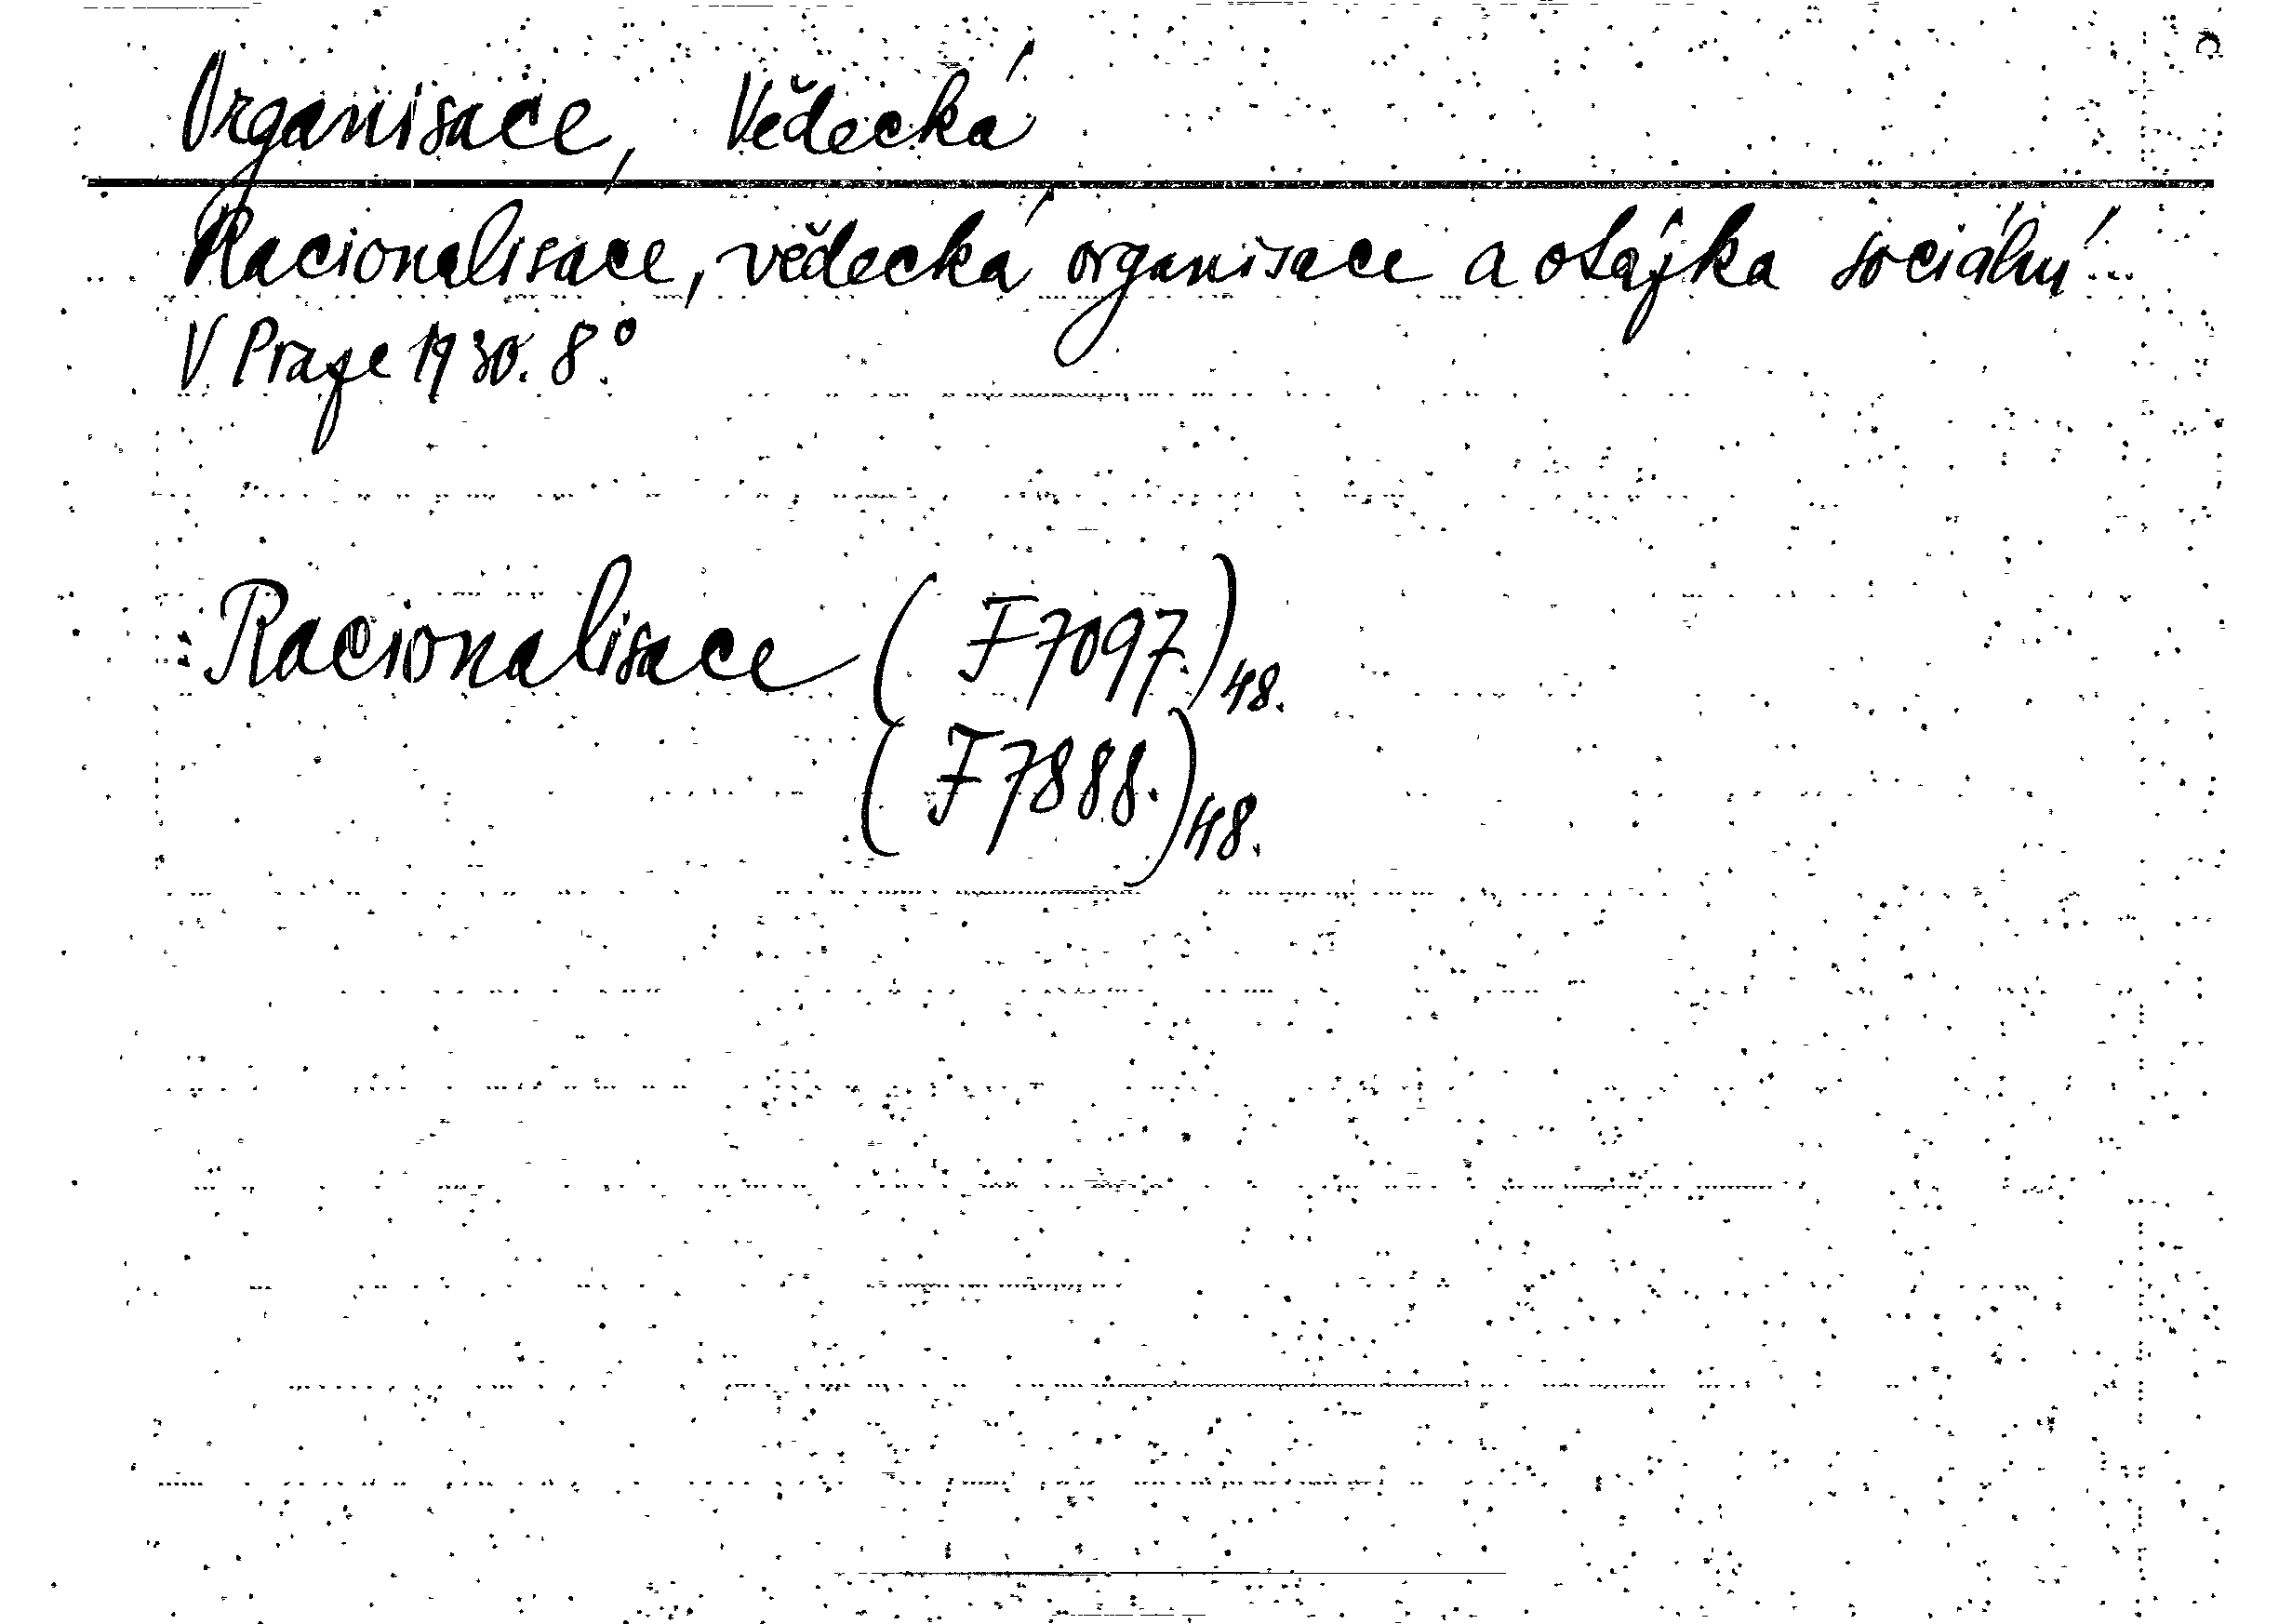 Organisace, Vědecká
Racionalisace, vědecká organisace a otázka sociální...
V Praze 1930. 8°
Racionalisace (F 7097.) 48.
(F 7888.) 48.